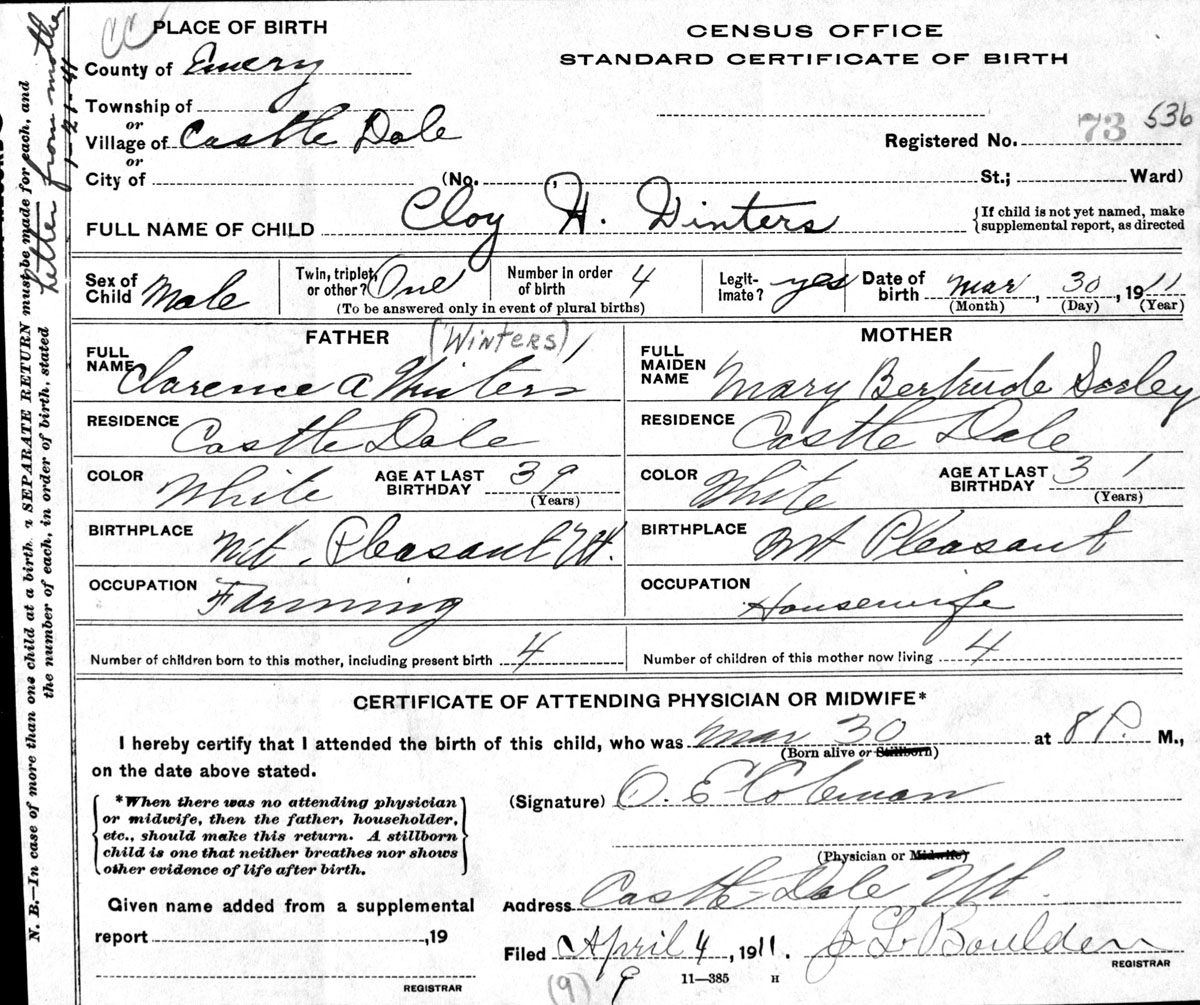 PLACE OF BIRTH
CENSUS OFFICE
STANDARD CERTIFICATE OF BIRTH
County of Emery
Township of
or
Village of Castle Dale
or
City of (No. , St.; Ward)
Registered No. 73 536
FULL NAME OF CHILD Cloy H. Winters
{If child is not yet named, make
supplemental report, as directed
Sex of Child Male
Twin, triplet, or other? One
Number in order of birth 4
(To be answered only in event of plural births)
Legitimate? yes
Date of birth Mar, 30, 1911
(Month) (Day) (Year)
FATHER (WINTERS)
FULL NAME Clarence A Winters
RESIDENCE Castle Dale
COLOR White AGE AT LAST BIRTHDAY 39
(Years)
BIRTHPLACE Mt. Pleasant Ut.
OCCUPATION Farming
MOTHER
FULL MAIDEN NAME Mary Bertrude Seeley
RESIDENCE Castle Dale
COLOR White AGE AT LAST BIRTHDAY 31
(Years)
BIRTHPLACE Mt Pleasant
OCCUPATION Housewife
Number of children born to this mother, including present birth 4
Number of children of this mother now living 4
CERTIFICATE OF ATTENDING PHYSICIAN OR MIDWIFE*
I hereby certify that I attended the birth of this child, who was Mar 30 at 8 P. M.,
(Born alive or Stillborn)
on the date above stated.
{*When there was no attending physician
or midwife, then the father, householder,
etc., should make this return. A stillborn
child is one that neither breathes nor shows
other evidence of life after birth.}
(Signature) O. E Coleman
(Physician or Midwife)
Given name added from a supplemental
report , 19
REGISTRAR
Address Castle Dale Ut.
Filed April 4, 1911. J L Boulden
REGISTRAR
(9) 9 11—385 H
N. B.—In case of more than one child at a birth, a SEPARATE RETURN must be made for each, and
the number of each, in order of birth, stated
Letter from mother
1-21-41